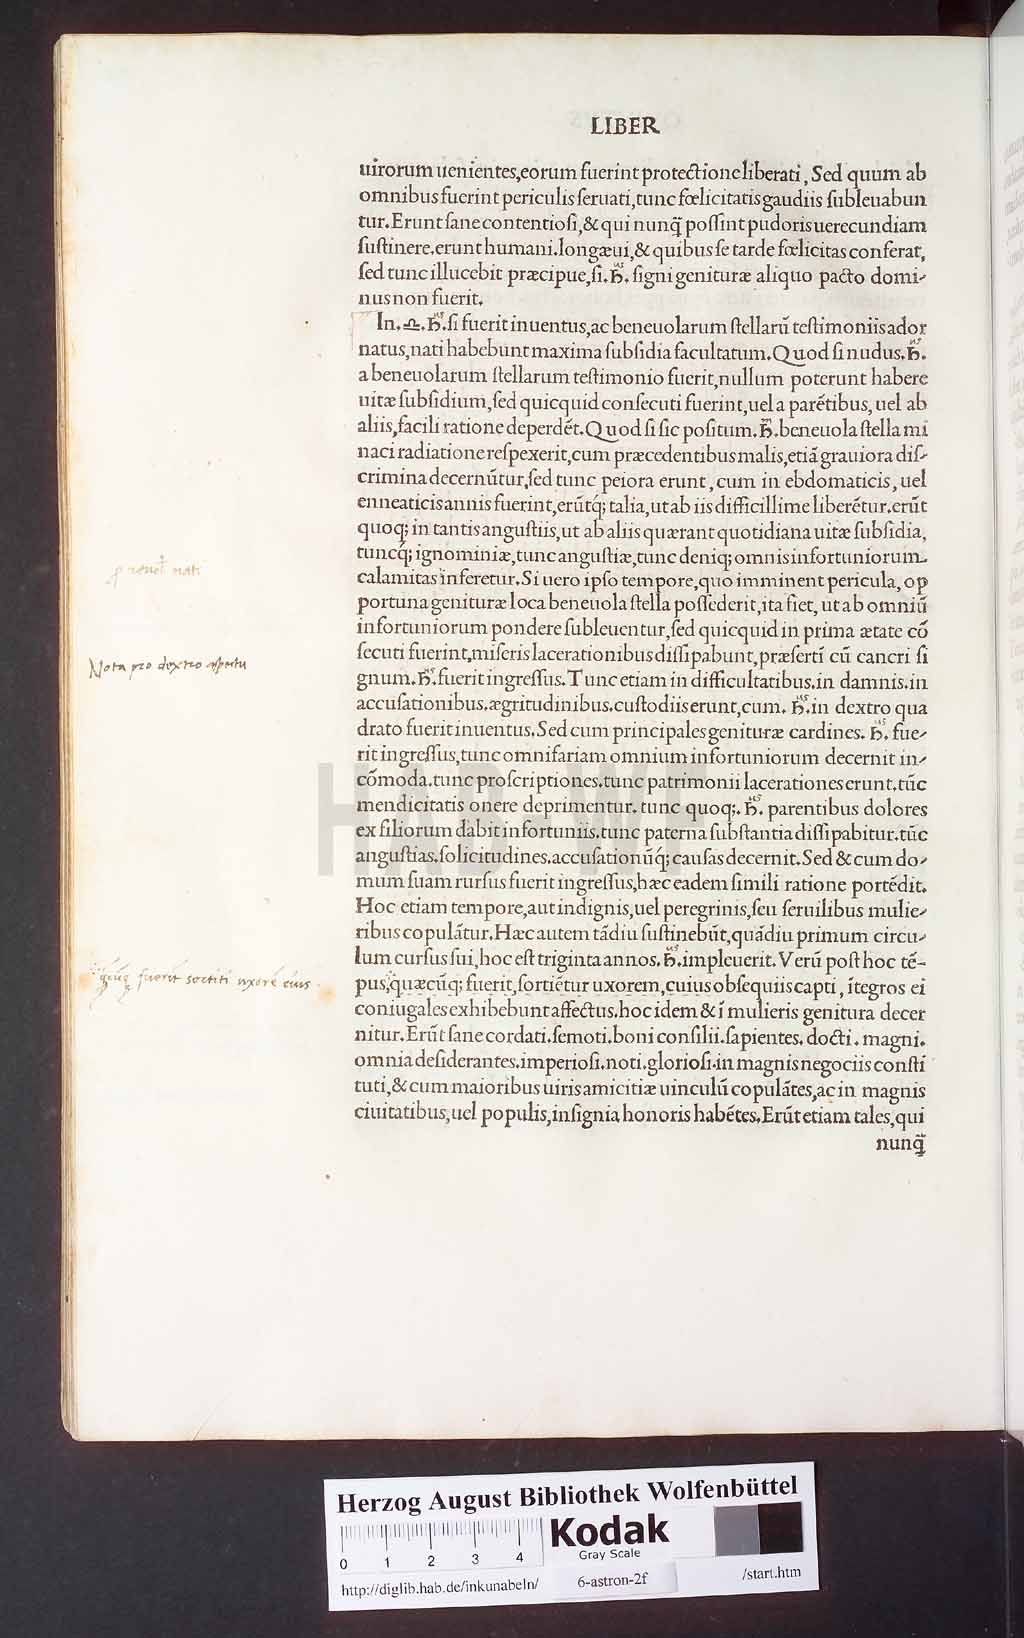 LIBER
uirorum uenientes,eorum fuerint protectione liberati, Sed quum ab
omnibus fuerint periculis ſeruati,tunc fœlicitatis gaudiis ſubleuabun
tur. Erunt ſane contentioſi,& qui nunq̃ poſſint pudoris uerecundiam
ſuſtinere.erunt humani.longæui,& quibus ſe tarde fœlicitas conferat,
ſed tunc illucebit præcipue,ſi.♄.ſigni genituræ aliquo pacto domi-
nus non fuerit.
In.♎.♄.ſi fuerit inuentus,ac beneuolarum ſtellarū teſtimoniis ador
natus,nati habebunt maxima ſubſidia facultatum.Quod ſi nudus.♄.
a beneuolarum ſtellarum teſtimonio fuerit,nullum poterunt habere
uitæ ſubſidium,ſed quicquid conſecuti fuerint,uel a parētibus, uel ab
aliis,facili ratione deperdēt.Quod ſi ſic poſitum.♄.beneuola ſtella mi
naci radiatione reſpexerit,cum præcedentibus malis,etiā grauiora diſ-
crimina decernūtur,ſed tunc peiora erunt, cum in ebdomaticis, uel
enneaticis annis fuerint,erūtq; talia,ut ab iis difficillime liberētur.erūt
quoq; in tantis anguſtiis,ut ab aliis quærant quotidiana uitæ ſubſidia,
tuncq; ignominiæ,tunc anguſtiæ,tunc deniq; omnis infortuniorum
calamitas inferetur.Si uero ipſo tempore,quo imminent pericula, op
portuna genituræ loca beneuola ſtella poſſederit,ita fiet, ut ab omniū
infortuniorum pondere ſubleuentur,ſed quicquid in prima ætate cō
ſecuti fuerint,miſeris lacerationibus diſſipabunt,præſertī cū cancri ſi
gnum.♄.fuerit ingreſſus.Tunc etiam in difficultatibus.in damnis.in
accuſationibus.ægritudinibus.cuſtodiis erunt,cum. ♄.in dextro qua
drato fuerit inuentus.Sed cum principales genituræ cardines. ♄. fue-
rit ingreſſus,tunc omnifariam omnium infortuniorum decernit in-
cōmoda.tunc proſcriptiones.tunc patrimonii lacerationes erunt.tūc
mendicitatis onere deprimentur. tunc quoq;. ♄. parentibus dolores
ex filiorum dabit infortuniis.tunc paterna ſubſtantia diſſipabitur.tūc
anguſtias.ſolicitudines.accuſationūq; cauſas decernit.Sed & cum do-
mum ſuam rurſus fuerit ingreſſus,hæc eadem ſimili ratione portēdit.
Hoc etiam tempore,aut indignis,uel peregrinis,ſeu ſeruilibus mulie-
ribus copulātur.Hæc autem tādiu ſuſtinebūt,quādiu primum circu-
lum curſus ſui,hoc eſt triginta annos.♄.impleuerit.Verū poſt hoc tē-
pus,quæcūq; fuerit,ſortiētur uxorem,cuius obſequiis capti, ītegros ei
coniugales exhibebunt affectus.hoc idem & ī mulieris genitura decer
nitur.Erūt ſane cordati.ſemoti.boni conſilii.ſapientes. docti. magni.
omnia deſiderantes.imperioſi.noti.glorioſi.in magnis negociis conſti
tuti,& cum maioribus uiris amicitiæ uinculū copulātes,ac in magnis
ciuitatibus,uel populis,inſignia honoris habētes.Erūt etiam tales,qui
nunq̃
nati
Nota pro dextro aspectu
fuerit sortiti uxorē eius
HAB-WF
Herzog August Bibliothek Wolfenbüttel
Kodak
Gray Scale
0 1 2 3 4
http://diglib.hab.de/inkunabeln/
6-astron-2f
/start.htm